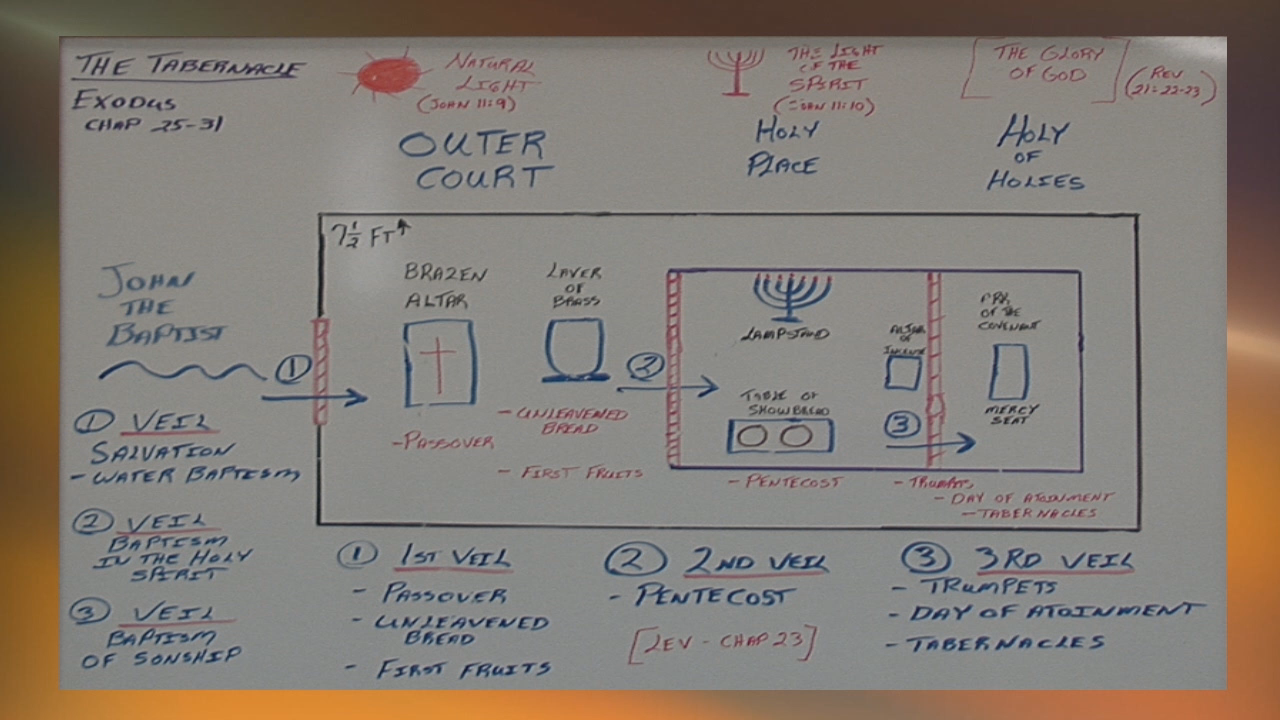 THE TABERNACLE
EXODUS
CHAP 25-31
NATURAL
LIGHT
(JOHN 11:9)
OUTER
COURT
THE LIGHT
OF THE
SPIRIT
(JOHN 11:10)
HOLY
PLACE
THE GLORY
OF GOD
(REV
21:22-23)
HOLY
OF
HOLIES
7 1/2 FT
JOHN
THE
BAPTIST
1
BRAZEN
ALTAR
- PASSOVER
LAVER
OF
BRASS
- UNLEAVENED
BREAD
- FIRST FRUITS
2
LAMPSTAND
TABLE OF
SHOWBREAD
- PENTECOST
ALTAR
OF
INCENSE
3
ARK
OF THE
COVENANT
MERCY
SEAT
- TRUMPETS
- DAY OF ATOINMENT
- TABERNACLES
1 VEIL
SALVATION
- WATER BAPTISM
2 VEIL
BAPTISM
IN THE HOLY
SPIRIT
3 VEIL
BAPTISM
OF SONSHIP
1 1ST VEIL
- PASSOVER
- UNLEAVENED
BREAD
- FIRST FRUITS
2 2ND VEIL
- PENTECOST
[LEV - CHAP 23]
3 3RD VEIL
- TRUMPETS
- DAY OF ATOINMENT
- TABERNACLES